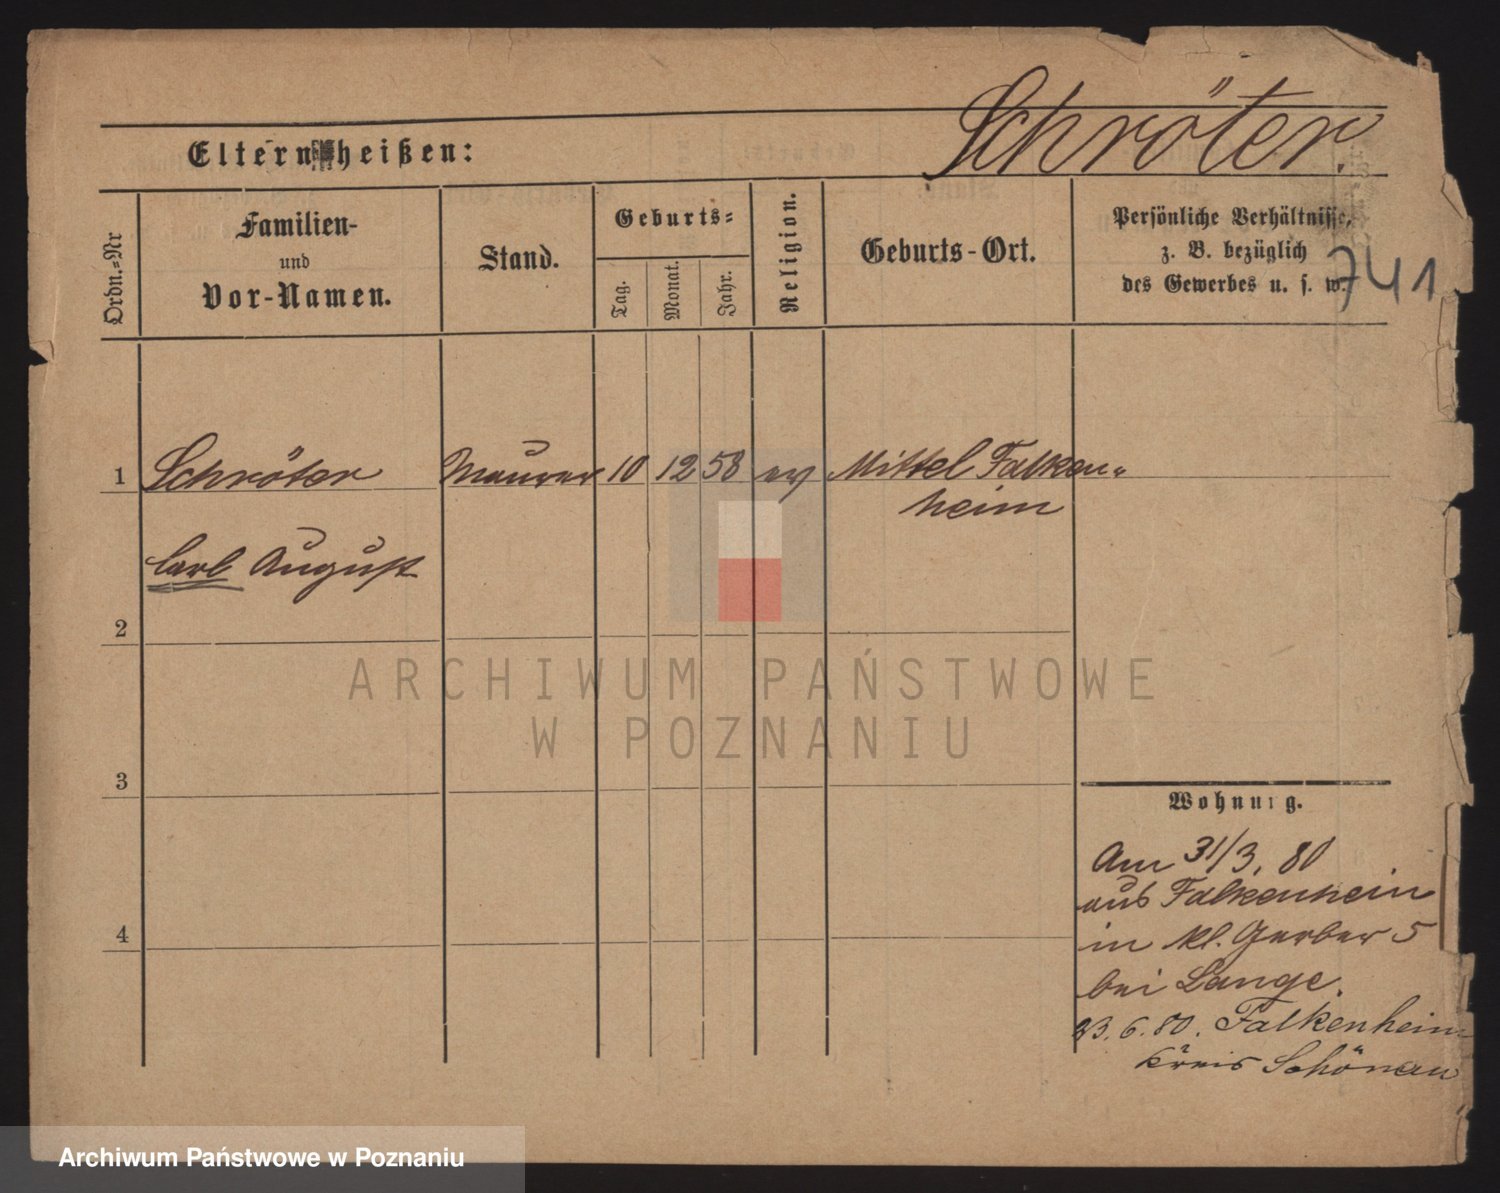 Schröter.
Eltern heißen:
Ordn.=Nr
Familien-
und
Vor-Namen.
Stand.
Geburts=
Tag.
Monat.
Jahr.
Religion.
Geburts-Ort.
Persönliche Verhältnisse,
z. B. bezüglich
des Gewerbes u. s. w.
741
1 Schröter Maurer 10 12 58 ev Mittel Falken=
heim
Carl August
2
3
4
Wohnung.
Am 31/3. 80
aus Falkenhein
in kl. Gerber 5
bei Lange.
23. 6. 80. Falkenhein
Kreis Schönau
ARCHIWUM PAŃSTWOWE
W POZNANIU
Archiwum Państwowe w Poznaniu